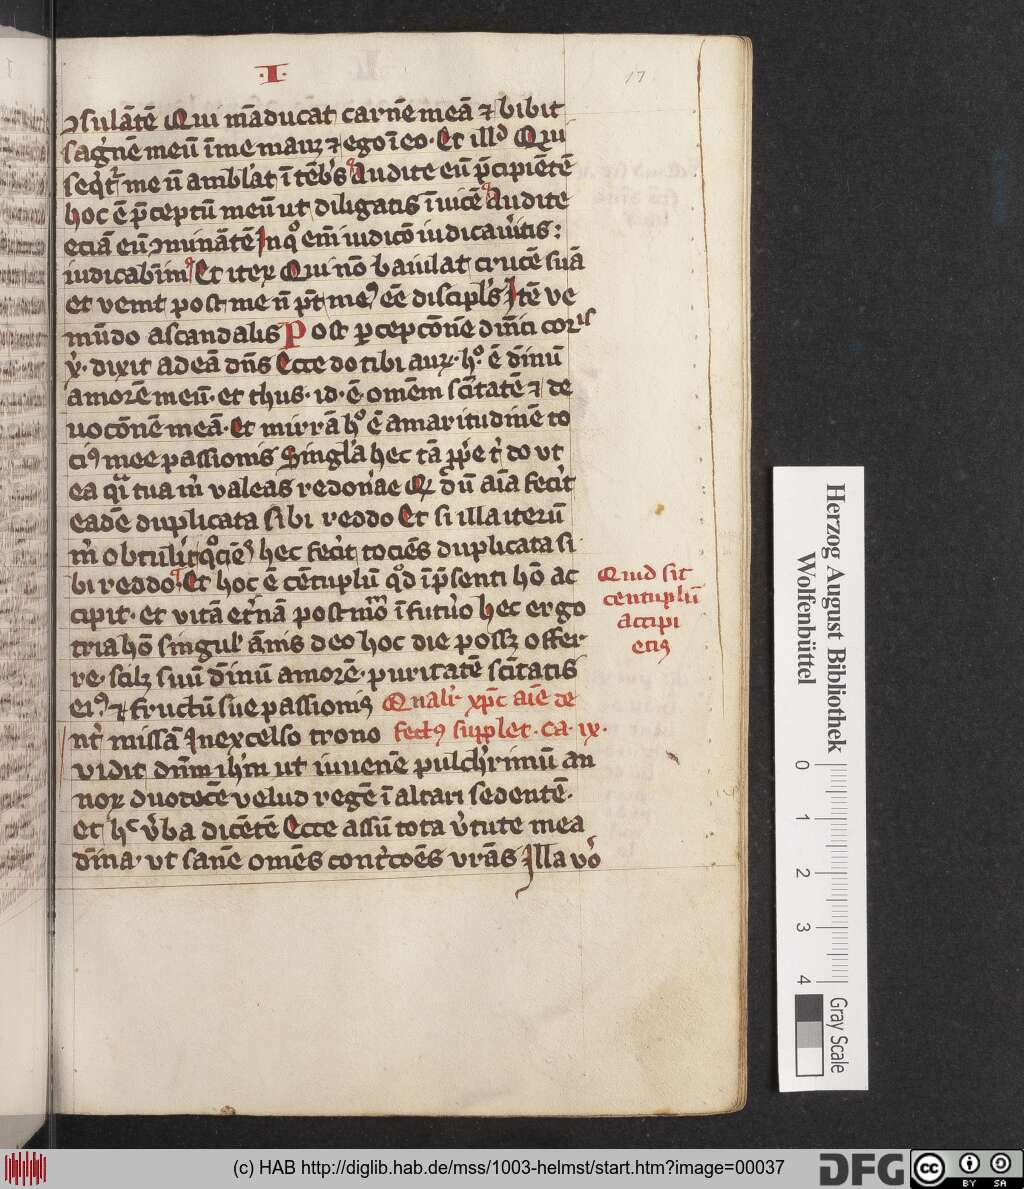 ·I·
17
ꝯsulātē Qui māducat carnē meā ⁊ bibit
sāgnē meū ī me manꝫ ⁊ ego ī eo· Et illᵈ Qui
seqͥtᷣ me n̄ amblat ī tēbͥs Audite eū p̄cipiētē
hoc ē p̄ceptū meū ut diligatis īuicē Audite
eciā eū ꝯminātē In qͦ em̄ iudicō iudicauitis:
iudicabīm Et iteꝝ Qui nō baiulat crucē suā
et venit post me n̄ pt̄ meꝰ eē discipls Itē ve
mūdo a scandalis Post ꝑcepcōnē dm̄ci corꝑis
dixit ad eā dn̄s Ecce do tibi auꝝ· hͦ· ē dīnū
amorē meū· et thus· id· ē· omēm scītatē ⁊ de
uocōnē meā· Et mirrā hͦ ē amaritudinē to
ciꝰ mee passionis Singla hec tā ꝓp̄e tͥ do vt
ea qͣi tua mͥ valeas redonae Qꝝ dū aīa fecit
eadē duplicata sibi reddo Et si illa iterū
mͥ obtulit qͦciēs hec fecit tociēs duplicata si
bi reddo Et hoc ē cētuplū qͦd ī p̄senti hō ac
cipit· et vitā et̄nā postmͦ ī futuͦ hec ergo
tria hō singuł ānis deo hoc die possꝫ offer
re· scilꝫ suū dīnū amorē· puritatē scītatis
eiꝰ ⁊ fructū sue passionis Qualiͬ xp̄c aīe de
nͬ missā In excelso trono fectꝰ supplet· ca· ix·
vidit dn̄m ih̄m ut iuvenē pulchrimū an
noꝝ duodece velud regē ī altari sedentē·
et hͨ v̄ba dicētē Ecce assū tota v̄tute mea
dīna· vt sanē omēs contͥcoēs vrās Illa vͦ
Quid sit
centuplū
accipi
etis
Herzog August Bibliothek
Wolfenbüttel
0 1 2 3 4
Gray Scale
(c) HAB http://diglib.hab.de/mss/1003-helmst/start.htm?image=00037
DFG
cc
BY SA